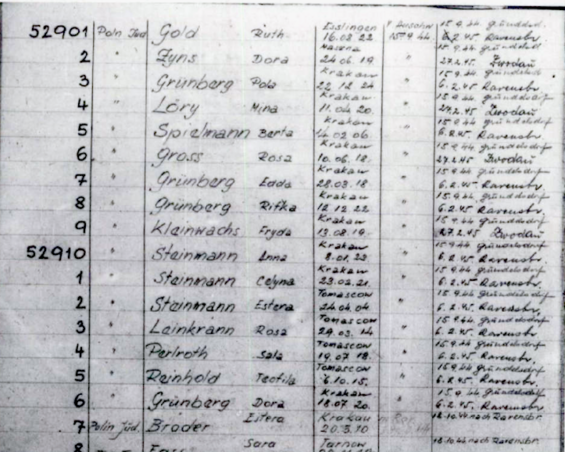 52901 Poln Jüd Gold Ruth Eislingen 16.08.22 15.9.44 15.9.44 2.45 Ravensbr.
2 " Zyns Dora 24.06.19 " 15.9.44 27.2.45 Zwodau
3 " Grünberg Pola Krakau 22.12.24 " 15.9.44 6.2.45 Ravensbr.
4 " Löry Mina Krakau 11.04.20 " 15.9.44 27.2.45 Zwodau
5 " Spielmann Berta Krakau 14.02.06 " 15.9.44 Gründelsdorf 6.2.45 Ravensbr.
6 " Gross Rosa Krakau 10.06.12. " 15.9.44 27.2.45 Zwodau
7 " Grünberg Krakau 28.03.18 " 15.9.44 6.2.45 Ravensbr.
8 " Grünberg Rifka Krakau 12.12.22 " 15.9.44 6.2.45 Ravensbr.
9 " Kleinwachs Fryda Krakau 13.08.19 " 15.9.44 27.2.45 Zwodau
52910 " Steinmann Anna Krakau 8.01.23 " 15.9.44 6.2.45 Ravensbr.
1 " Steinmann Celyna Krakau 23.02.21. " 15.9.44 6.2.45 Ravensbr.
2 " Steinmann Estera Tomascow 24.04.04 " 15.9.44 6.2.45 Ravensbr.
3 " Leinkrann Rosa Tomascow 29.03.14 " 15.9.44 6.2.45 Ravensbr.
4 " Perlroth Sala Tomascow 19.07.18. " 15.9.44 6.2.45 Ravensbr.
5 " Reinhold Teofila Tomascow 6.10.15. " 15.9.44 6.2.45 Ravensbr.
6 " Grünberg Dora Krakau 18.07.20. " 15.9.44 6.2.45 Ravensbr.
7 Polin Jüd. Broder Estera Krakau 20.3.10 18.10.44 nach Ravensbr.
8 Sara Tarnow 18.10.44 nach Ravensbr.